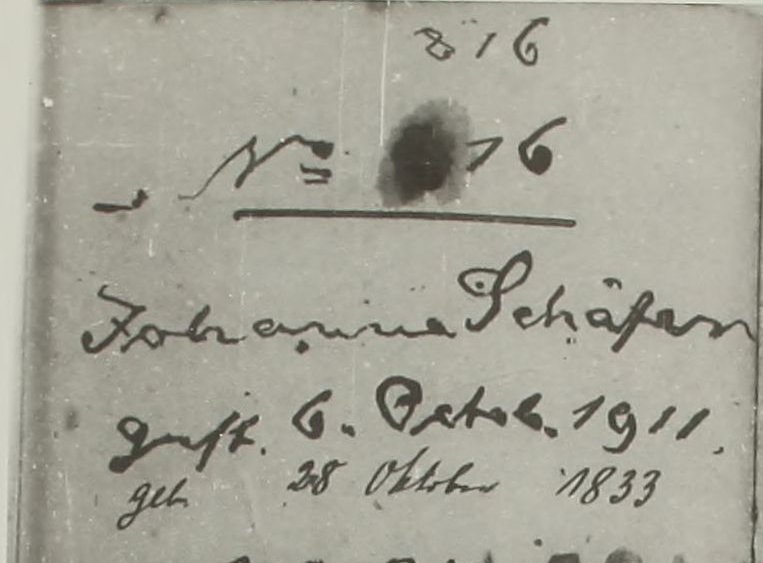 816
No 16
Johanna Schäfer
gest. 6. Octob. 1911.
geb. 28 Oktober 1833